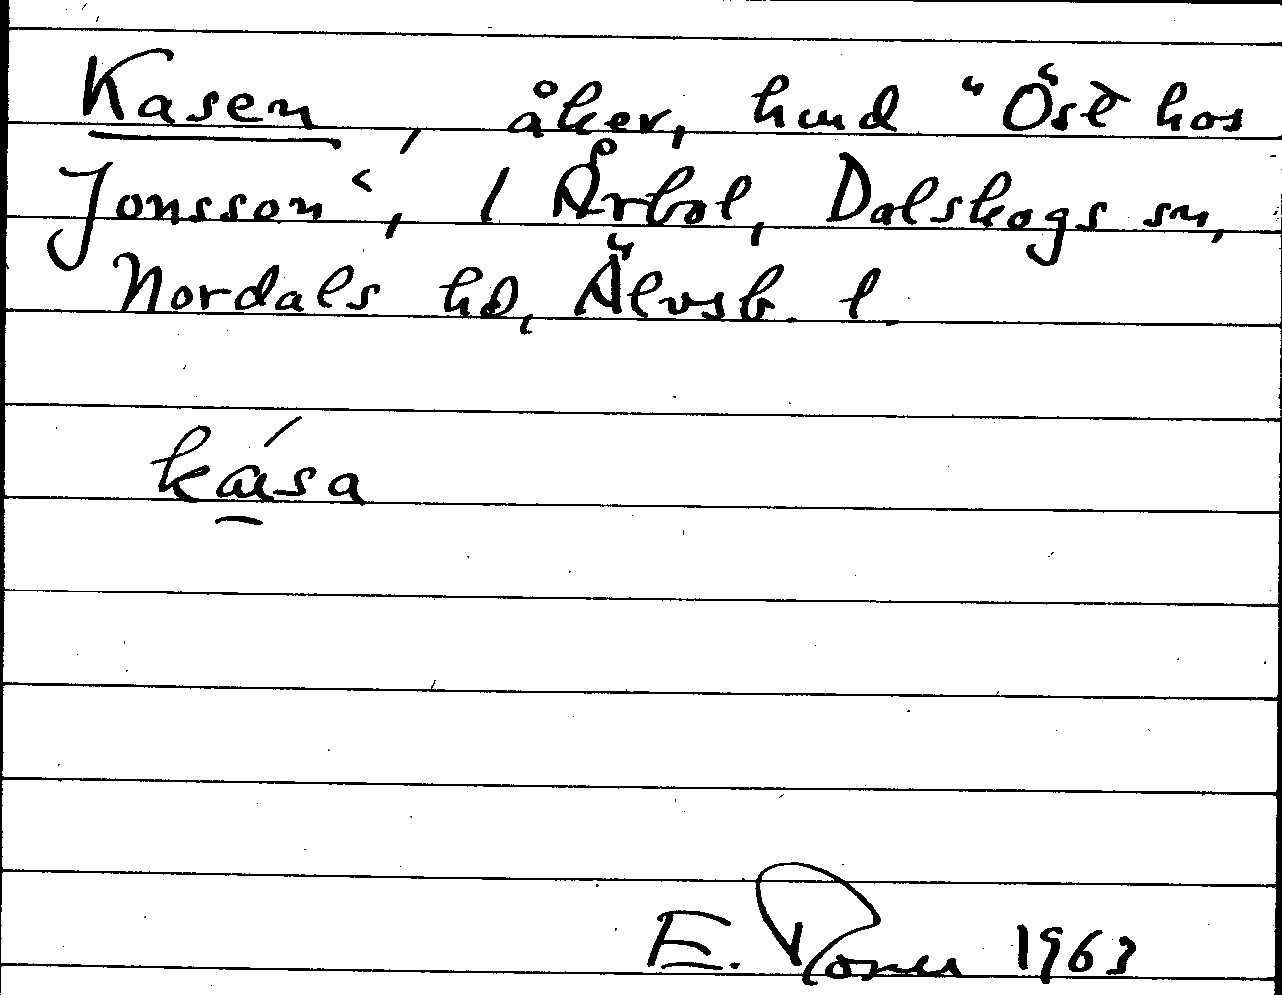 Kasen, åker, hmd "Öst hos
Jonsson", 1 Årbol, Dalskogs sn,
Nordals hd, Älvsb. l.
kása
E. Rosner 1963